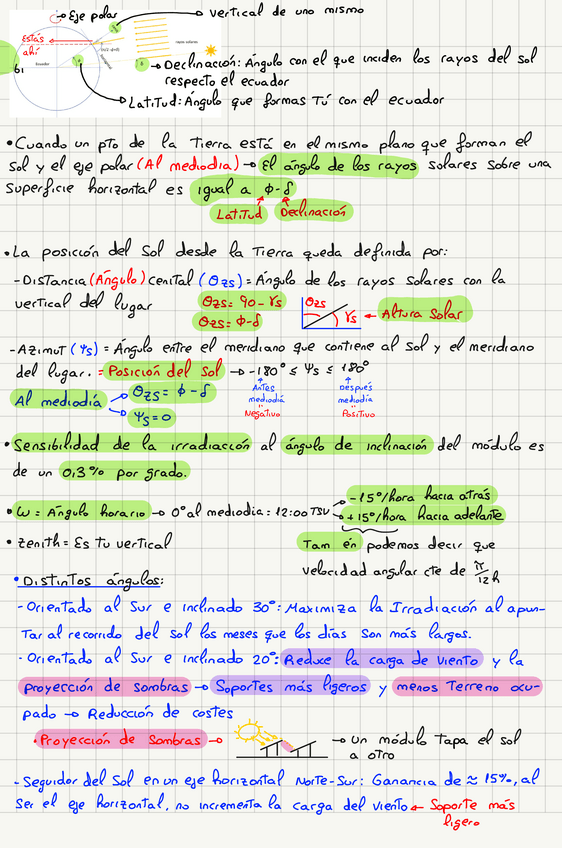 Eje polar
vertical de uno mismo
Estás
ahí
Ecuador
rayos solares
Declinación: Ángulo con el que inciden los rayos del sol
respecto el ecuador
Latitud: Ángulo que formas TÚ con el ecuador
• Cuando un pto de la Tierra está en el mismo plano que forman el
Sol y el eje polar (Al mediodía) → El ángulo de los rayos solares sobre una
superficie horizontal es igual a ϕ-δ
Latitud Declinación
• La posición del Sol desde la Tierra queda definida por:
- Distancia (Ángulo) cenital (θzs) = Ángulo de los rayos solares con la
vertical del lugar θzs = 90 - γs θzs γs ← Altura Solar
θzs = ϕ-δ
- Azimut (Ψs) = Ángulo entre el meridiano que contiene al Sol y el meridiano
del lugar. = Posición del Sol → -180° ≤ Ψs ≤ 180°
Al mediodía θzs = ϕ - δ
Ψs = 0
Antes mediodía Negativo
Después mediodía Positivo
• Sensibilidad de la irradiación al ángulo de inclinación del módulo es
de un 0,3% por grado.
• ω = Ángulo horario → 0° al mediodía: 12:00 TSV
-15°/hora hacia atrás
+15°/hora hacia adelante
• Zenith = Es tu vertical
Tam én podemos decir que
velocidad angular cte de π/12 h
• Distintos ángulos:
- Orientado al Sur e inclinado 30°: Maximiza la Irradiación al apun-
tar al recorrido del sol los meses que los días son más largos.
- Orientado al Sur e inclinado 20°: Reduce la carga de viento y la
proyección de sombras → Soportes más ligeros y menos terreno ocu-
pado → Reducción de costes
• Proyección de Sombras → → un módulo tapa el sol
a otro
- Seguidor del Sol en un eje horizontal Norte-Sur: Ganancia de ≈ 15%, al
ser el eje horizontal, no incrementa la carga del viento ← Soporte más
ligero